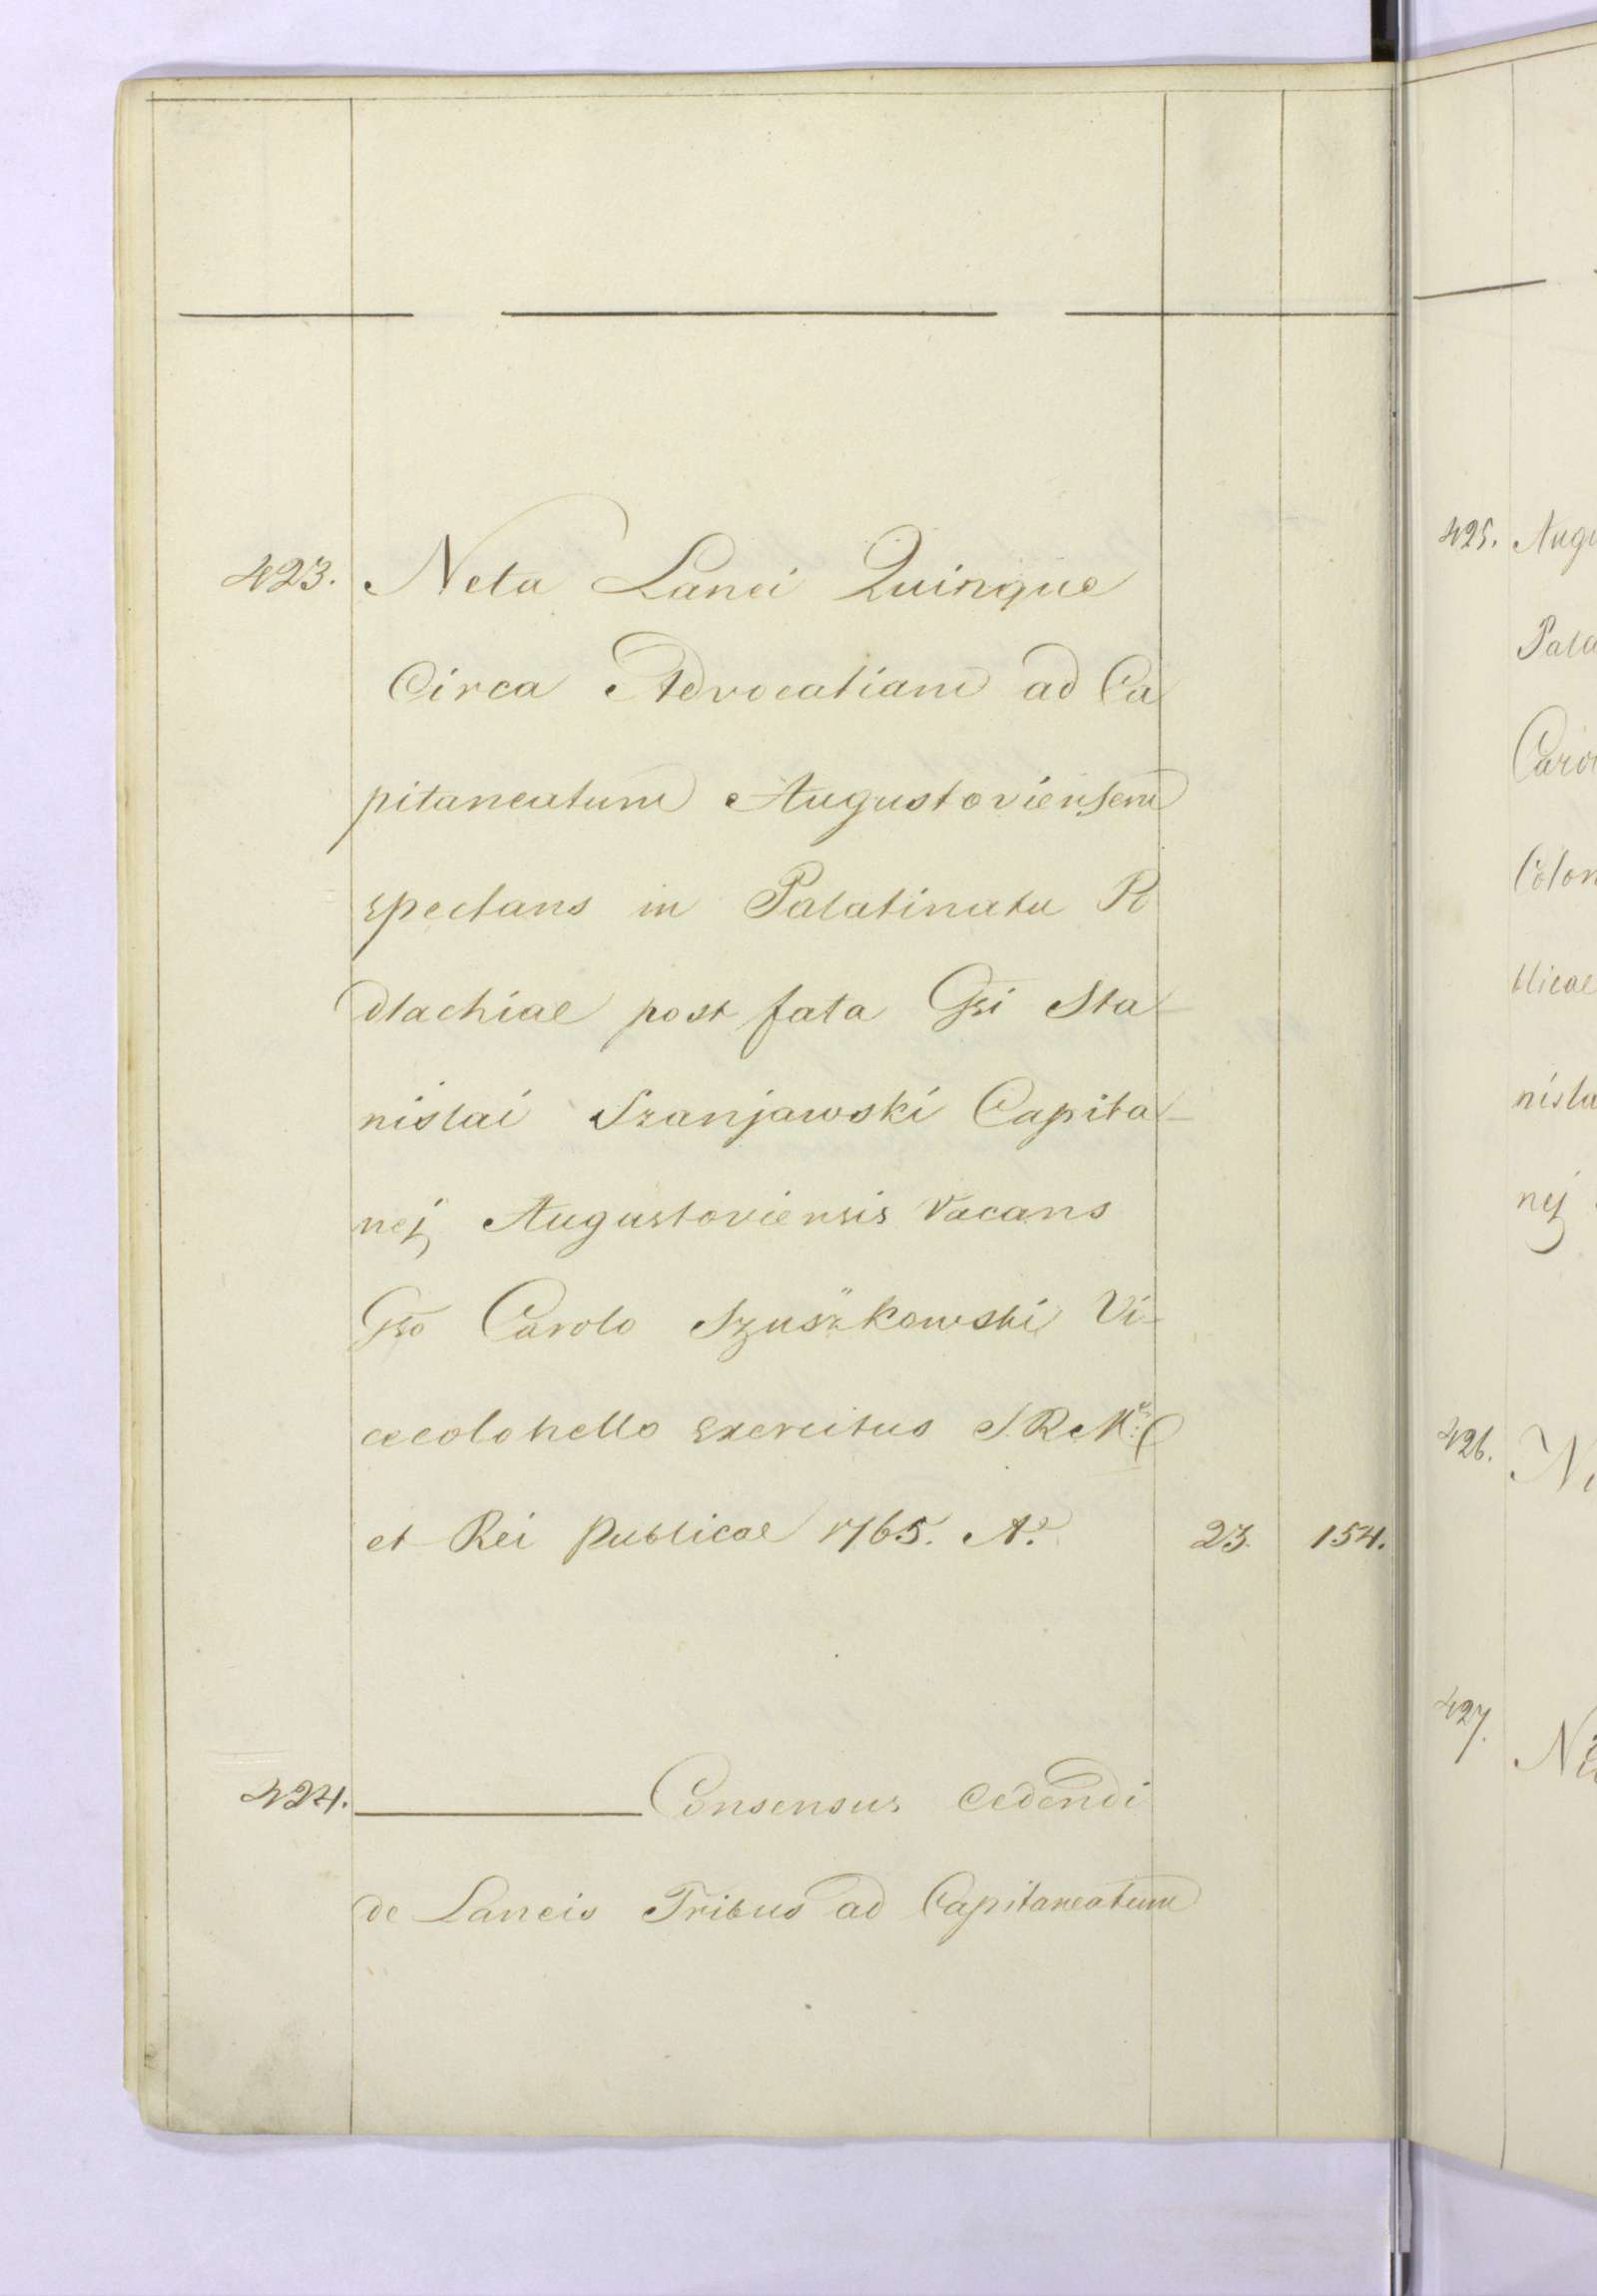 423. Neta Lanei Quinque
Circa Advocatiam ad Ca
pitaneatum Augustoviensem
spectans in Palatinatu Po
dlachiae post fata Gsi Sta-
nislai Szanjawski Capita-
nej Augustoviensis Vacans
Gso Carolo Szuszkowski Vi-
cecolonello Exercitus S. R. M.
et Rei Publicae 1765. Ao. 23. 154.
424. Consensus cedendi
de Laneis Tribus ad Capitaneatum
425. Augu
Pala
Caro
Colon
blicae
nisla
nej
426. N
427. N